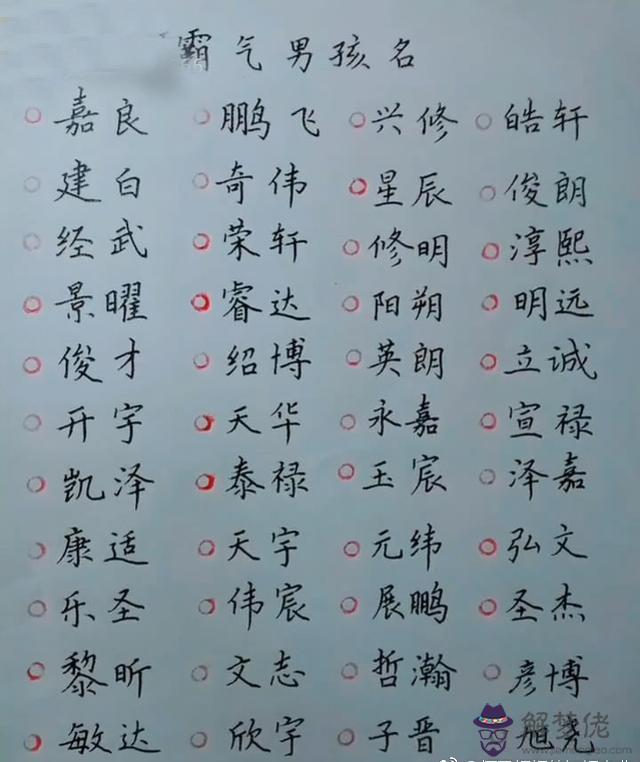 霸气男孩名
嘉良 鹏飞 兴修 皓轩
建白 奇伟 星辰 俊朗
经武 荣轩 修明 淳熙
景曜 睿达 阳朔 明远
俊才 绍博 英朗 立诚
开宇 天华 永嘉 宣禄
凯泽 泰禄 玉宸 泽嘉
康适 天宇 元纬 弘文
乐圣 伟宸 展鹏 圣杰
黎昕 文志 哲瀚 彦博
敏达 欣宇 子晋 旭尧
解梦佬